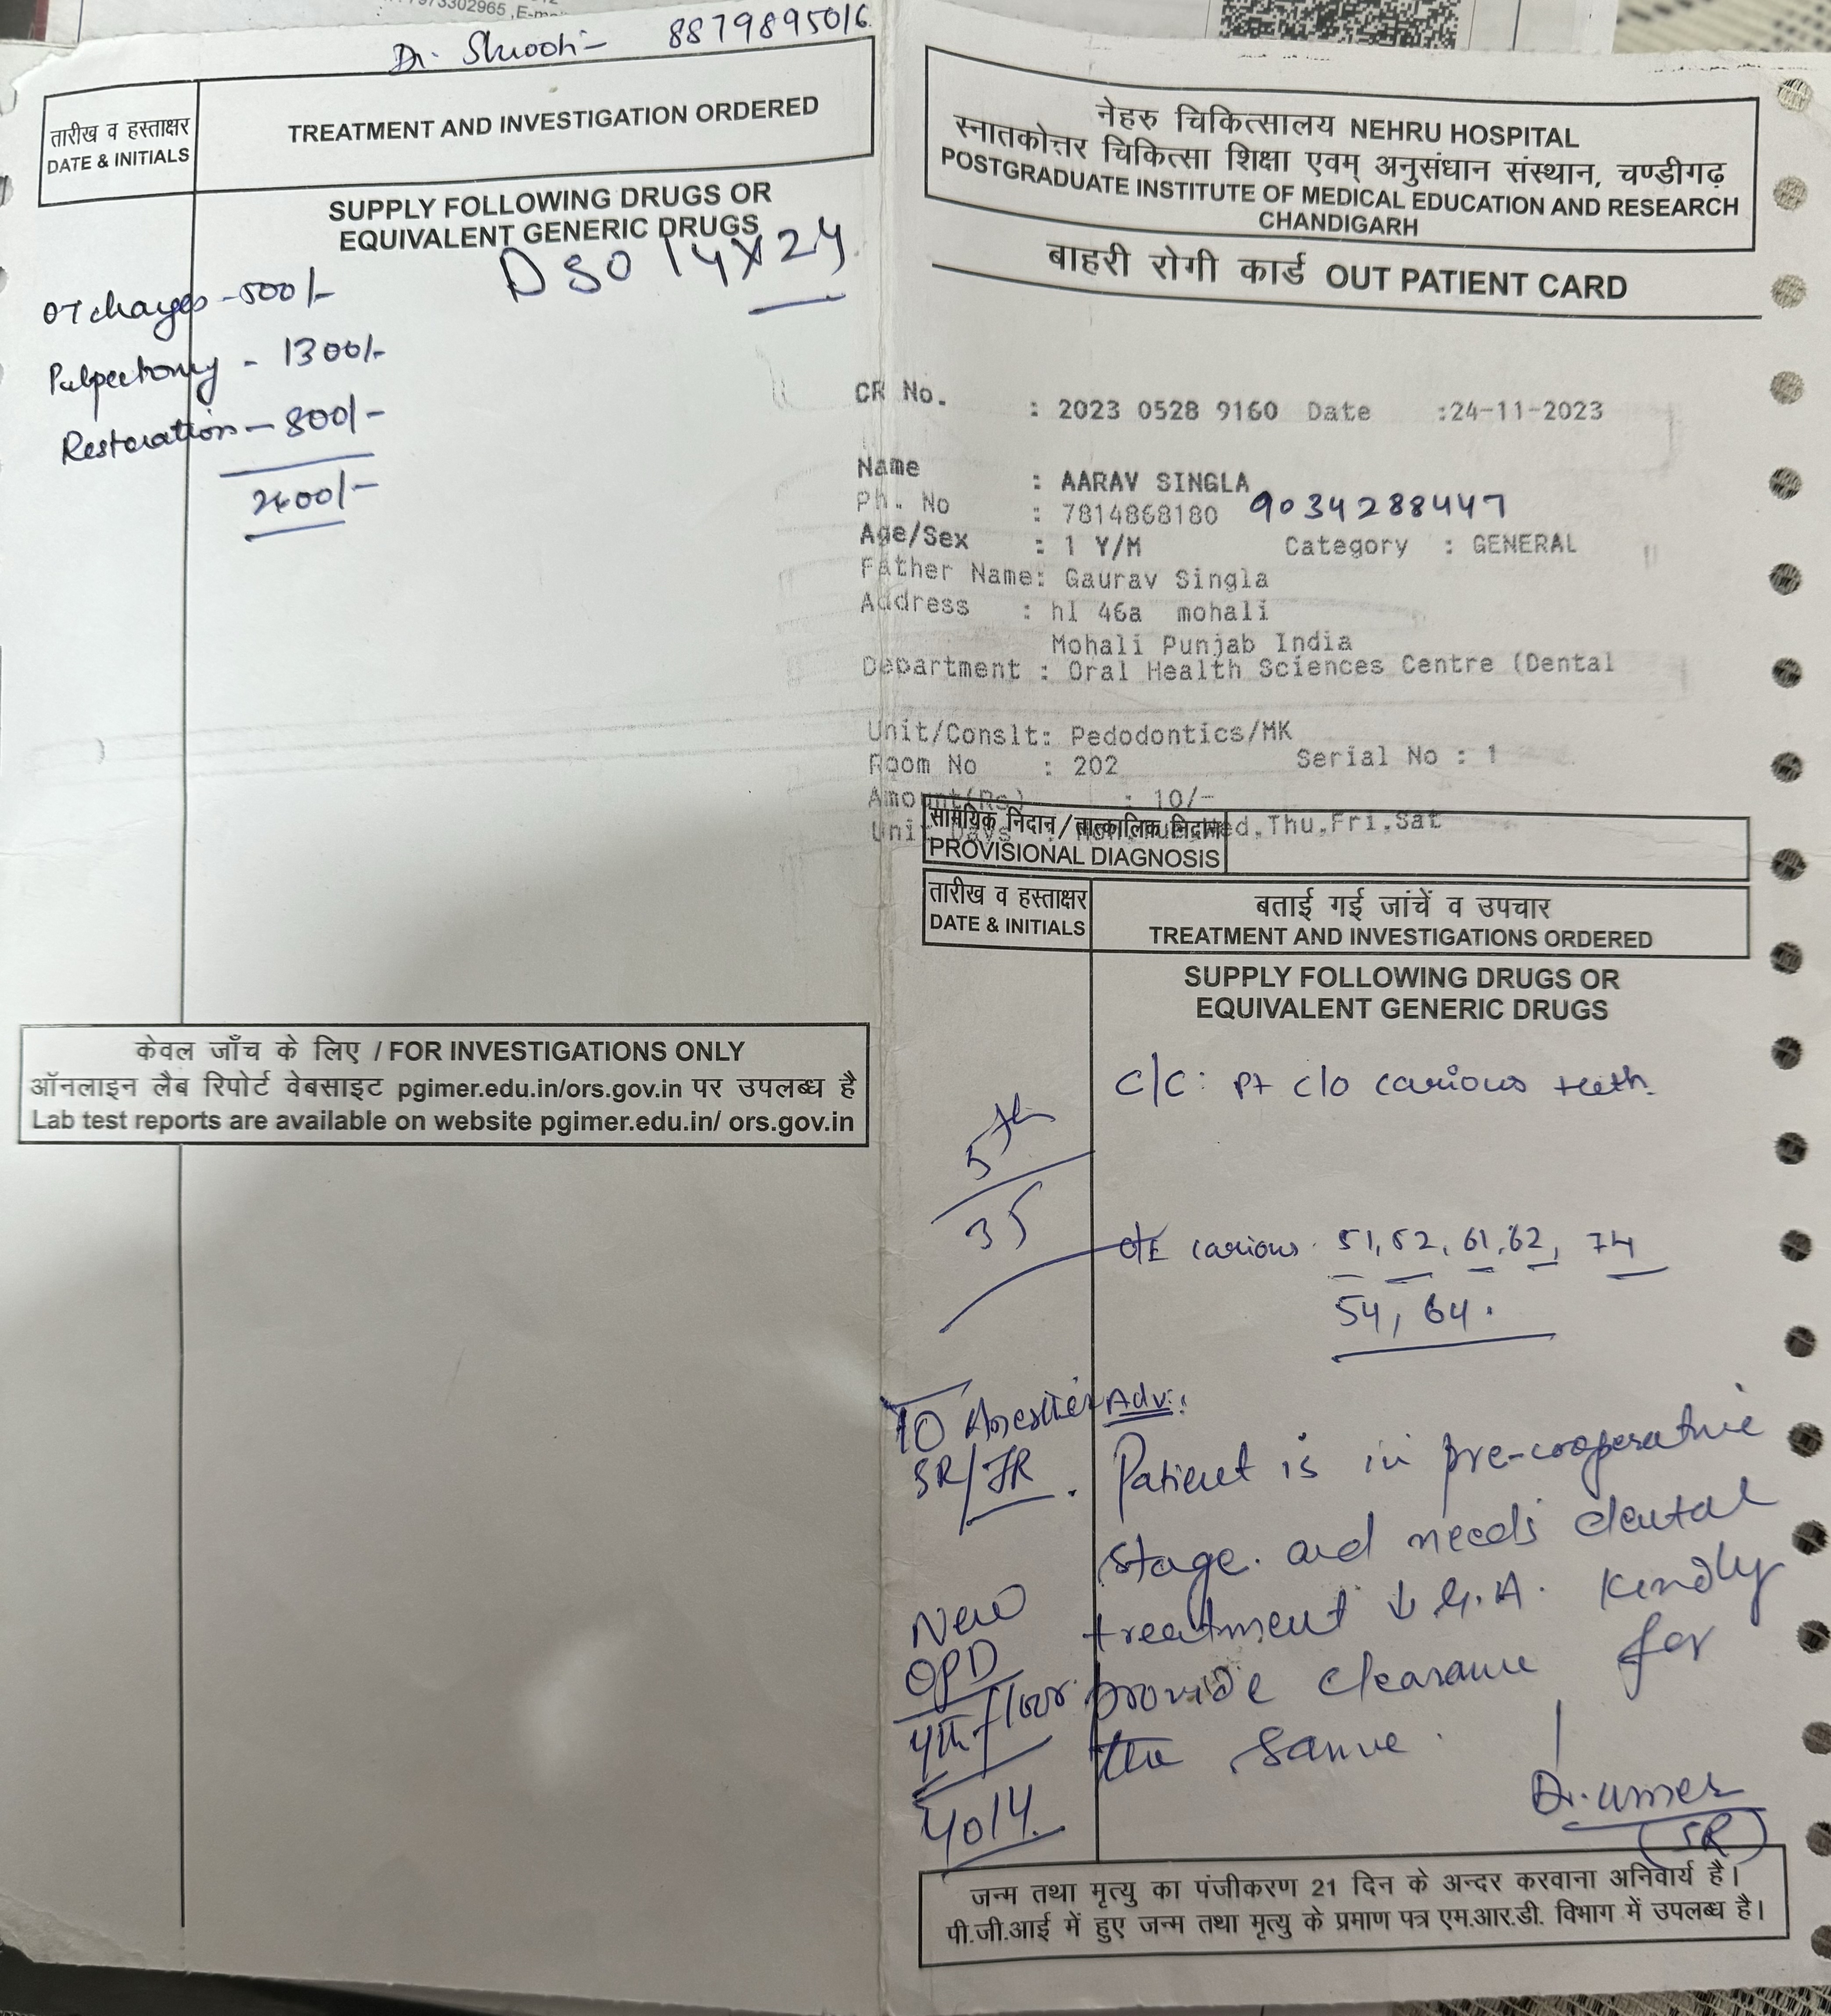 973302965 ,E-m
Dr. Shrooti - 8879895016
तारीख व हस्ताक्षर
DATE & INITIALS
TREATMENT AND INVESTIGATION ORDERED
SUPPLY FOLLOWING DRUGS OR
EQUIVALENT GENERIC DRUGS
DSO 14X24
OT charges - 500/-
Pulpectomy - 1300/-
Restoration - 800/-
2600/-
केवल जाँच के लिए / FOR INVESTIGATIONS ONLY
ऑनलाइन लैब रिपोर्ट वेबसाइट pgimer.edu.in/ors.gov.in पर उपलब्ध है
Lab test reports are available on website pgimer.edu.in/ ors.gov.in
नेहरु चिकित्सालय NEHRU HOSPITAL
स्नातकोत्तर चिकित्सा शिक्षा एवम् अनुसंधान संस्थान, चण्डीगढ़
POSTGRADUATE INSTITUTE OF MEDICAL EDUCATION AND RESEARCH
CHANDIGARH
बाहरी रोगी कार्ड OUT PATIENT CARD
CR No. : 2023 0528 9160 Date :24-11-2023
Name : AARAV SINGLA
Ph. No : 7814868180 9034288447
Age/Sex : 1 Y/M Category : GENERAL
Father Name: Gaurav Singla
Address : hl 46a mohali
Mohali Punjab India
Department : Oral Health Sciences Centre (Dental
Unit/Conslt: Pedodontics/MK
Room No : 202 Serial No : 1
Amount(Rs) : 10/-
Unit Days : Mon,Tue,Wed,Thu,Fri,Sat
सामयिक निदान/तात्कालिक निदान
PROVISIONAL DIAGNOSIS
तारीख व हस्ताक्षर
DATE & INITIALS
बताई गई जांचें व उपचार
TREATMENT AND INVESTIGATIONS ORDERED
SUPPLY FOLLOWING DRUGS OR
EQUIVALENT GENERIC DRUGS
C/C: Pt c/o carious teeth.
5th
35
O/E carious 51, 52, 61, 62, 74
54, 64.
To
SR/JR.
Adv:
Patient is in pre-cooperative
stage. and needs dental
treatment ↓ G.A. Kindly
provide clearance for
the same.
New
OPD
4th floor
4014.
Dr. Umer
(SR)
जन्म तथा मृत्यु का पंजीकरण 21 दिन के अन्दर करवाना अनिवार्य है।
पी.जी.आई में हुए जन्म तथा मृत्यु के प्रमाण पत्र एम.आर.डी. विभाग में उपलब्ध है।